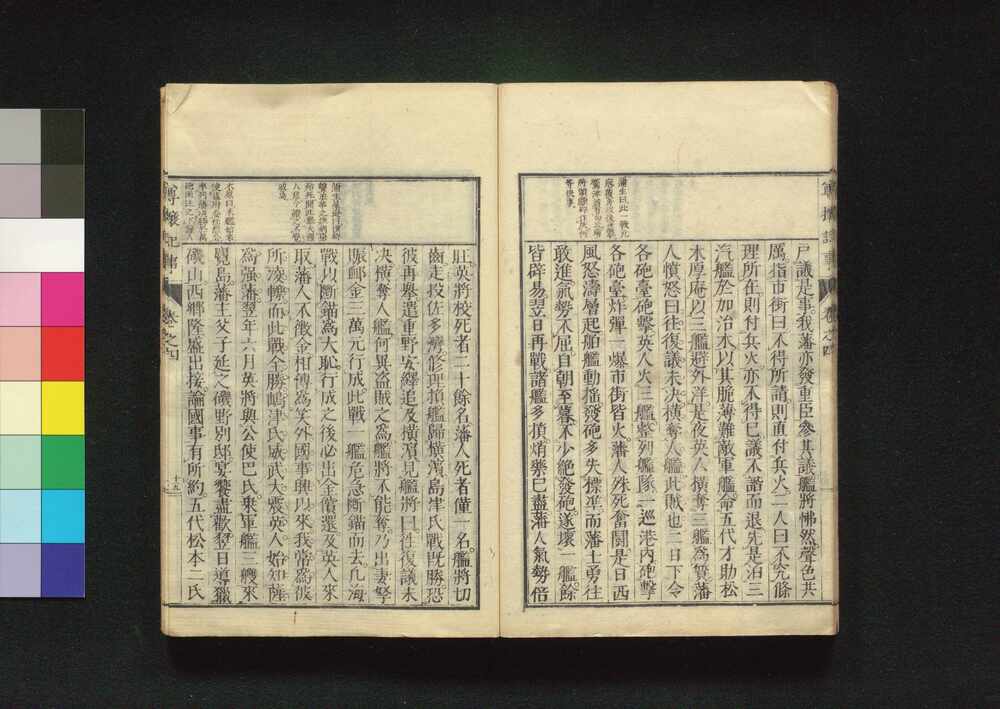 戶議是事我藩亦發重臣參其議艦將怫然聲色共
厲指市街曰不得所請則直付兵火二人曰不究條
理所在則付兵火亦不得已議不諧而退先是泊三
汽艦於加治木以其脆薄難敵軍艦命五代才助松
木厚庵以三艦避外洋是夜英人橫奪三艦爲質藩
人憤怒曰往復議未決橫奪人艦此賊也二日下令
各砲臺砲擊英人火三艦整列艦隊一巡港內砲擊
各砲臺炸彈一爆市街皆火藩人殊死奮鬪是日西
風怒濤層起舶艦動搖發砲多失標準而藩士勇往
敢進氣勢不屈自朝至暮不少絕發砲遂壞一艦餘
皆辟易翌日再戰諸艦多損焫藥已盡藩人氣勢倍
尊攘紀事
卷之四
旺英將校死者二十餘名藩人死者僅一名艦將切
齒走投佐多旁修理損艦歸橫濱島津氏戰旣勝恐
彼再舉遣重野安繹追及橫濱見艦將曰往復議未
決橫奪人艦何異盜賊之爲艦將不能奪乃出妻孥
賑䘏金三萬元行成此戰一艦危急斷錨而去凡海
戰以斷錨爲大恥行成之後必出金償還及英人來
取藩人不徵金相傳爲笑外國事興以來我常爲彼
所凌轢而此戰全勝嶋津氏威武大震英人始知薩
爲强藩翌年六月英將與公使巴氏乘軍艦三艘來
覽島藩主父子延之磯野別邸宴饗盡歡翌日導獵
磯山西鄉隆盛出接論國事有所約五代松本二氏
尊攘紀事
卷之四
十九